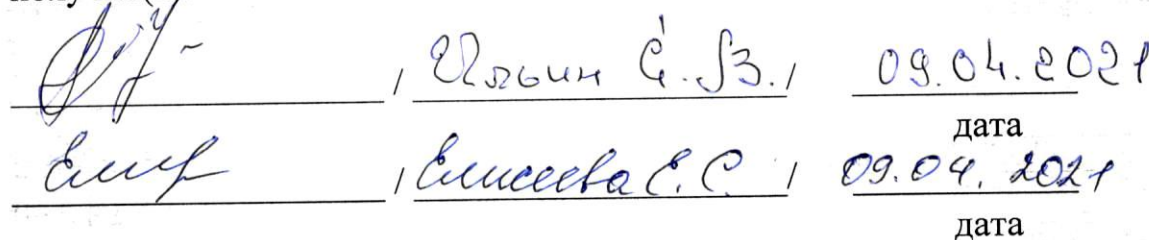 / Ильин С.В. / 09.04.2021
дата
/ Елисеева Е.С. / 09.04.2021
дата